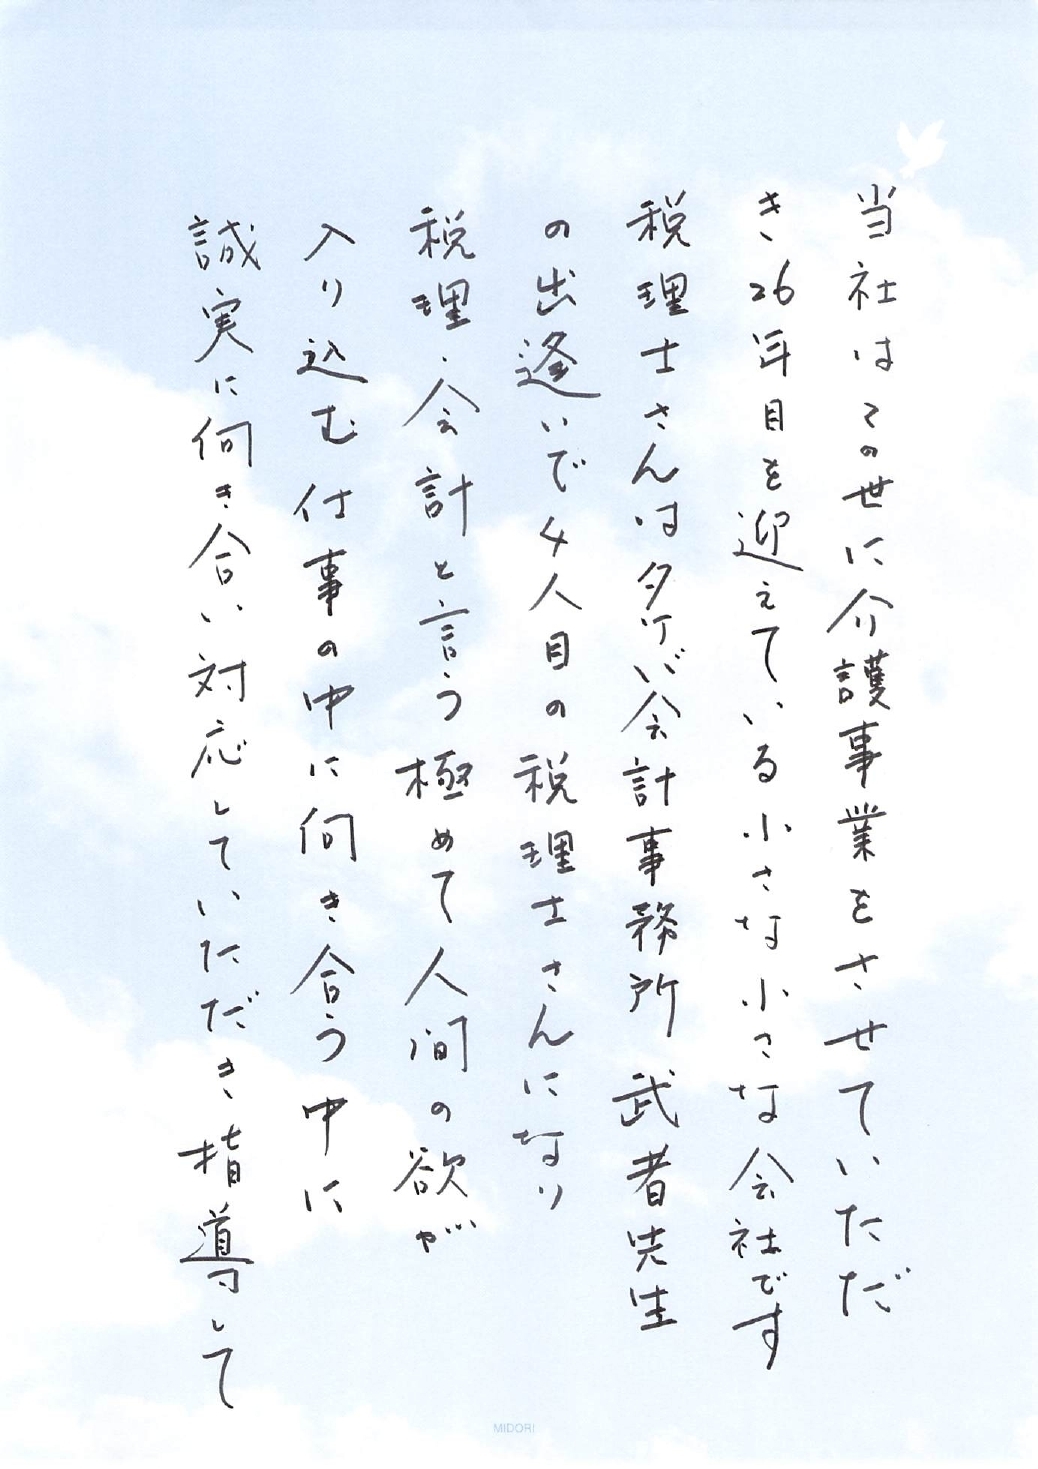 当社はこの世に介護事業をさせていただ
き26年目を迎えている小さな小さな会社です
税理士さんはタケバ会計事務所 武者先生
の出逢いで4人目の税理士さんになり
税理・会計と言う極めて人間の欲が
入り込む仕事の中に向き合う中に
誠実に向き合い対応していただき指導して
MIDORI